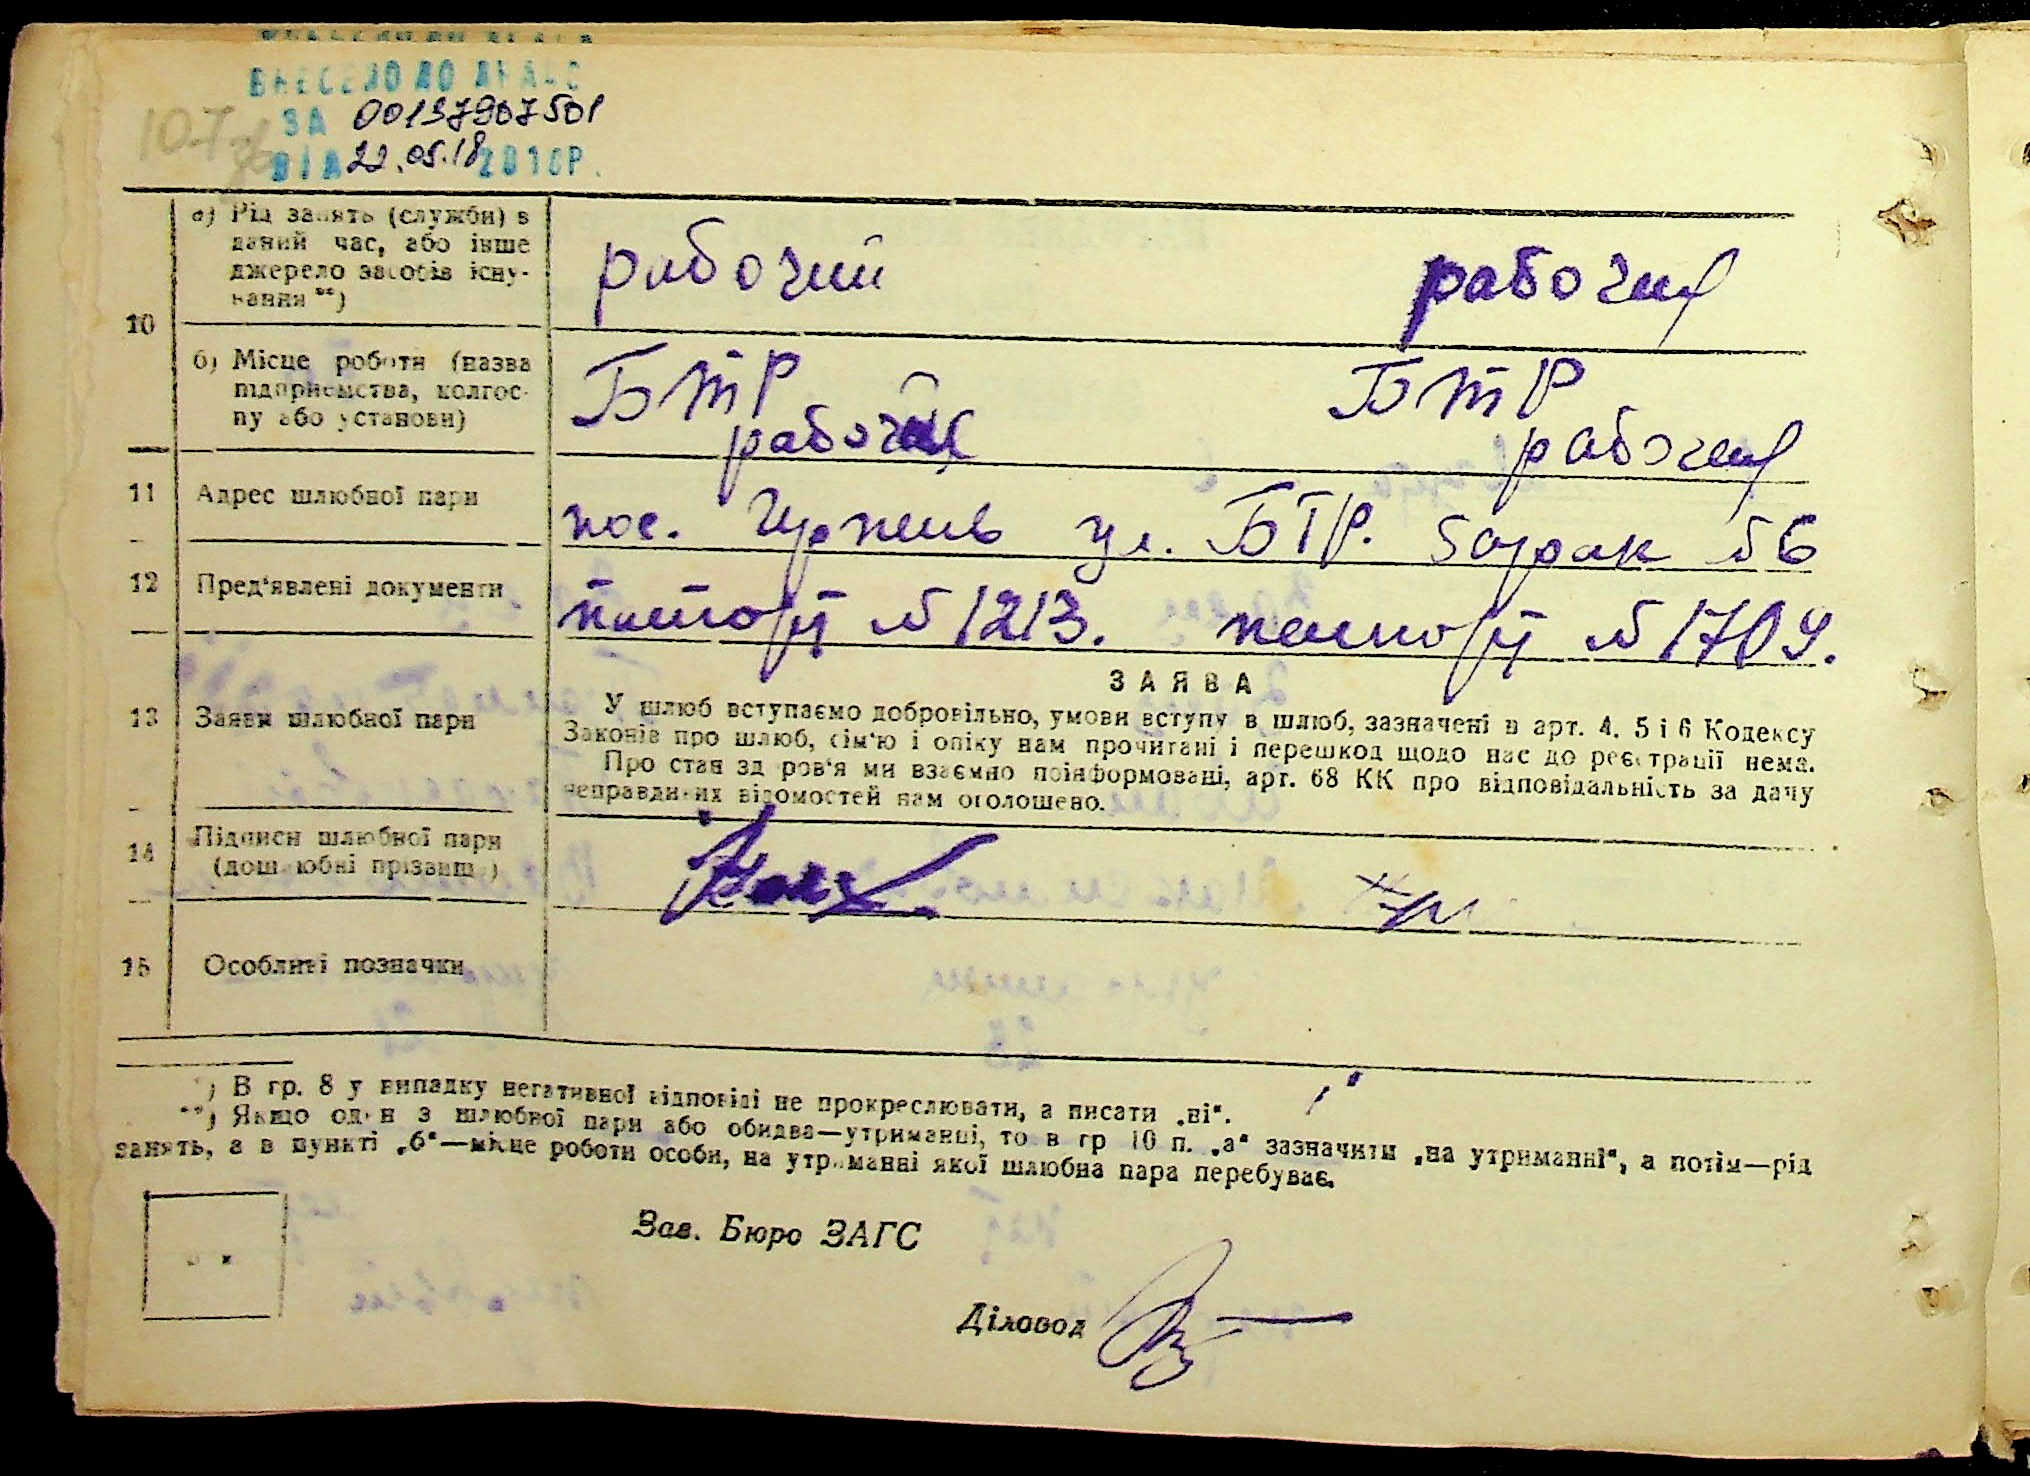 ВНЕСЕНО ДО ДРАЦС
ЗА 00137907501
ВІД 22.05.18 201 Р.
10 а) Рід занять (служби) в
даний час, або інше
джерело засобів існу-
вання **)
рабочий рабочий
б) Місце роботи (назва
підприємства, колгос-
пу або установи)
БТР БТР
рабочий рабочий
11 Адрес шлюбної пари
пос. Ирпень ул. БТР. барак №6
12 Пред'явлені документи
паспорт №1213. паспорт №1709.
13 Заяви шлюбної пари
ЗАЯВА
У шлюб вступаємо добровільно, умови вступу в шлюб, зазначені в арт. 4. 5 і 6 Кодексу
Законів про шлюб, сім'ю і опіку нам прочитані і перешкод щодо нас до реєстрації нема.
Про стан здоров'я ми взаємно поінформовані, арт. 68 КК про відповідальність за дачу
неправдивих відомостей нам оголошено.
14 Підписи шлюбної пари
(дошлюбні прізвищ.)
15 Особливі позначки
*) В гр. 8 у випадку негативної відповіді не прокреслювати, а писати „ні“.
**) Якщо один з шлюбної пари або обидва—утриманці, то в гр 10 п. „а“ зазначити „на утриманні“, а потім—рід
занять, а в пункті „б“—місце роботи особи, на утриманні якої шлюбна пара перебуває.
Зав. Бюро ЗАГС
Діловод